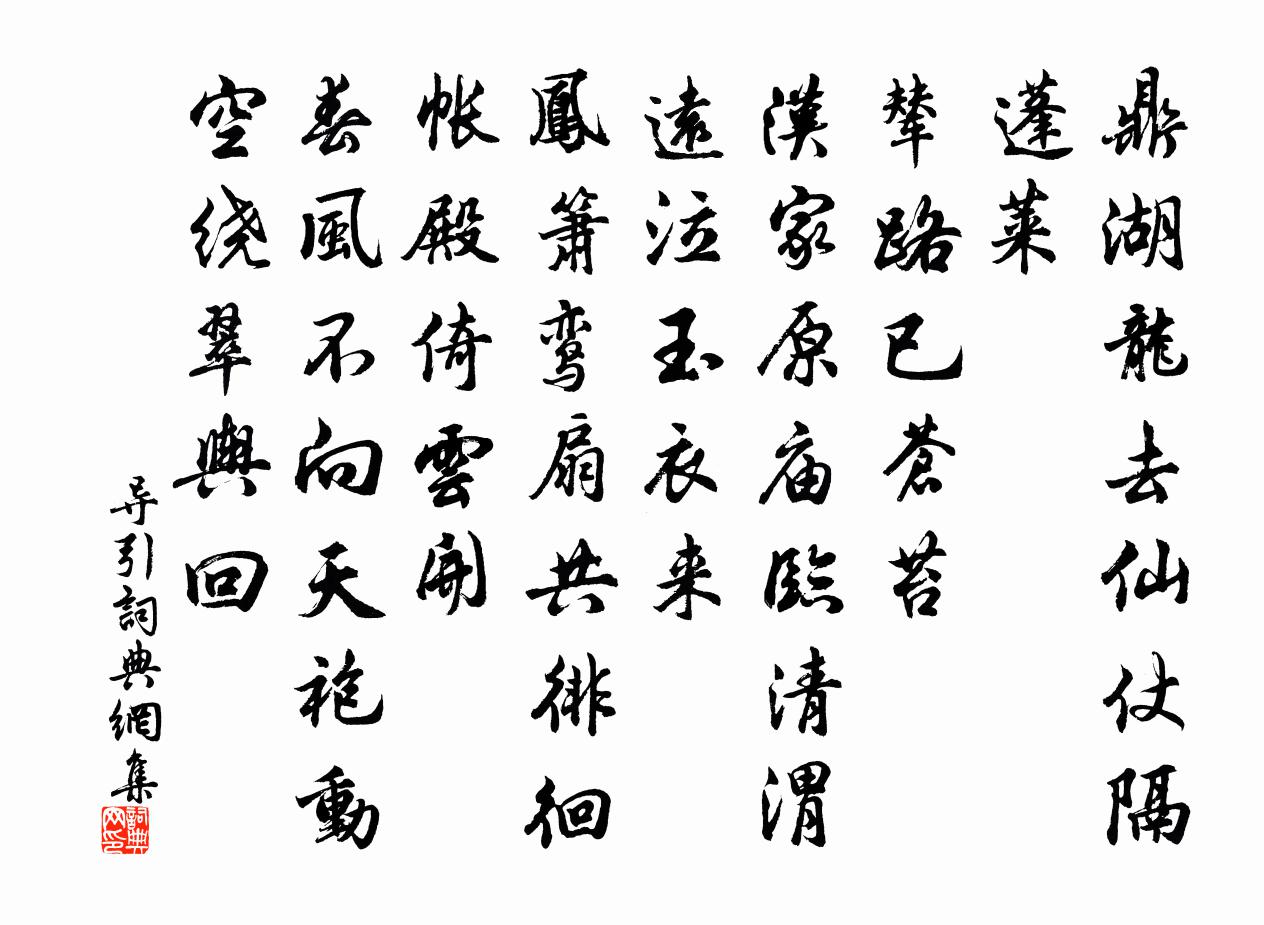 鼎湖龍去仙仗隔
蓬莱
輦路已蒼苔
漢家原庙臨清渭
遠泣玉衣来
鳳簫鸾扇共徘徊
帐殿倚雲開
春風不向天袍動
空绕翠輿回
导引詞典網集
詞典
网印